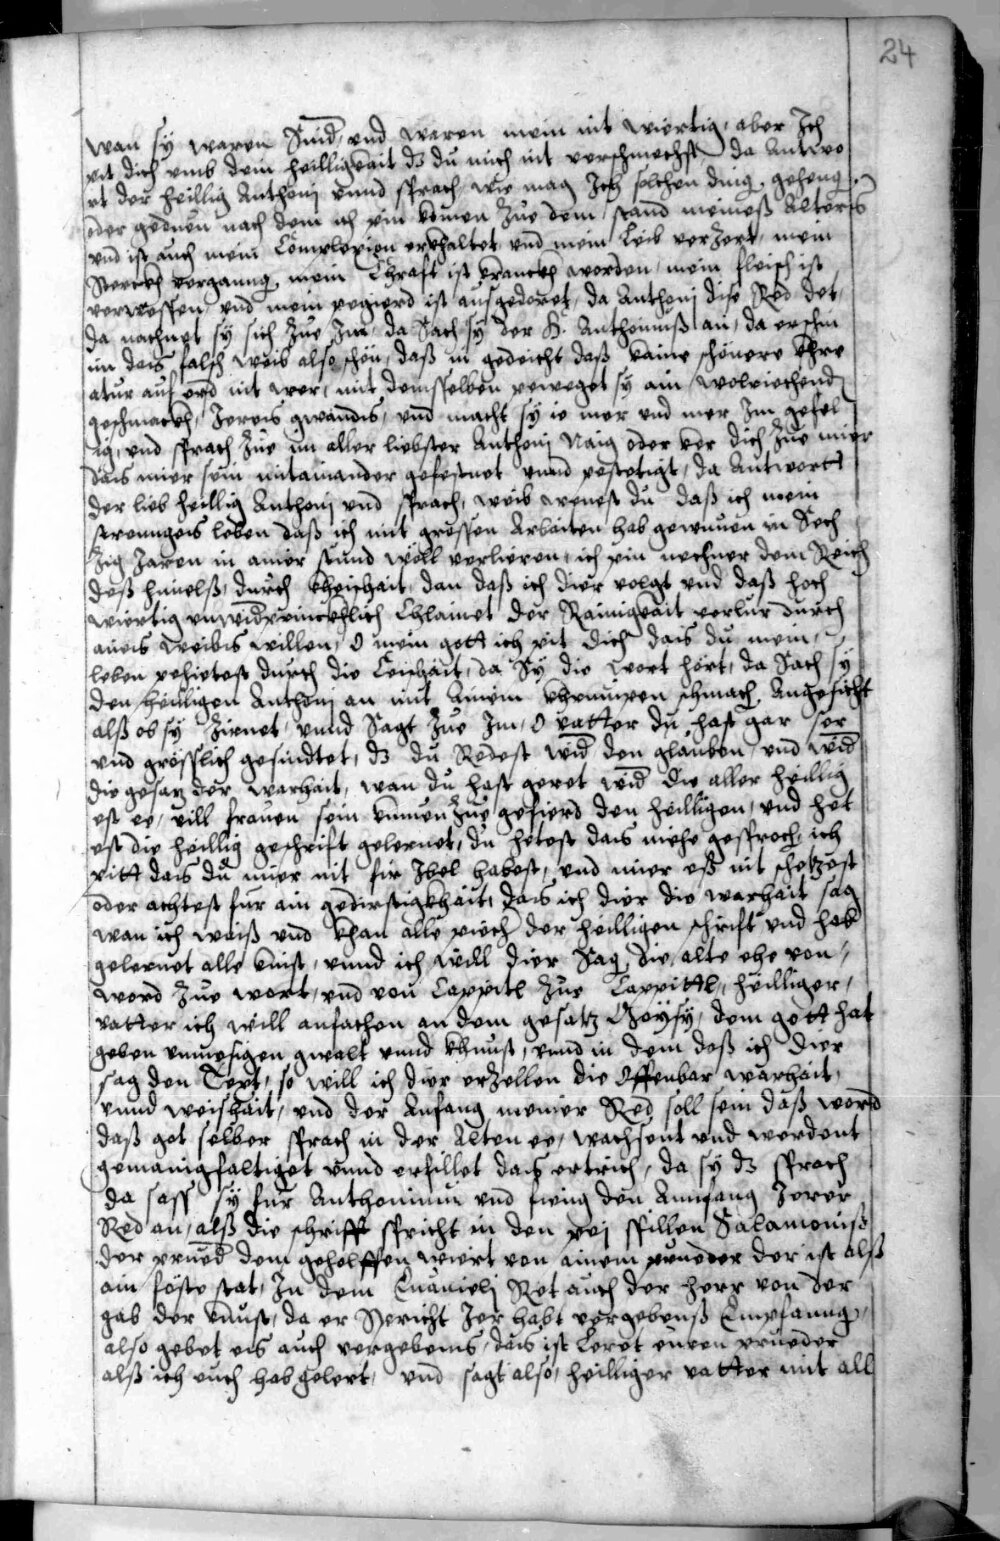 24
wan sy waren Sind, und waren mein nit wiertig, aber Ich
pit dich umb dein heilligkait dz du mich nit verschmechst, da Antwo
rt der heillig Anthonj vnnd sprach wie mag Ich solchen ding, geheng
oder geduen nach dem ich pin komen zue dem stand meineß Alters
und ist auch mein Complexion erkhaltet und mein Leib verzert, mein
Sterckh verganng, mein Chraft ist kranckh worden, mein fleisch ist
verwessen, und mein pegierd ist ausgederet, da Anthonj dise Red det,
da nachnet sy sich zue Im, da Sach sy der H. Anthoniuß an, da erschin
im das falsch weib also schön, daß in gedeicht daß kaine schönere khre
atur auf erd nit wer, mit demsselben peweget sy ain wolriechend
geschmackh, Ieres gwandts, und macht sy ie mer und mer Im gefel
ig, und sprach zue im aller liebster Anthonj Naig oder ker dich zue mier
das mier sein mitainander gefestnet unnd pestetigt, da Antwortt
der lieb heillig Anthonj und sprach, weib wenest du daß ich mein
strennges leben daß ich mit grossen Arbaiten hab gewunen in Sech
zig Jaren in ainer stund wöll verlieren, ich pin nechner dem Reich
deß himelß, durch kheischait, dan daß ich dier volgt und daß hoch
wiertig unwiderpincklich Chlainet der Rainigkait verlur durch
aines weibis willen, O mein gott ich pit dich das du mein
leben pehietest durch die Keishait, da Sy die wort hört, da Sach sy
den heilligen Anthonj an mit Ainem schmach Angesicht
alß ob sy Zirnet, unnd Sagt zue Im, O vatter du hast gar ser
und grösslich gesindtet, dz du Redest wid den glauben, und wid
die gesaz der warhait, wan du hast geret wid die aller heillig
est ee, vill frauen sein kumen zue gefierd den heilligen, und het
est die heillig geschrift gelernet, du hetest das niehe gesproch, ich
pitt das du mier nit fir Ibel habest, und mier eß nit schetzest
oder achtest für ain gedirstigkhait, das ich dier die warhait sag
wan ich waiß und khan alle piech der heilligen schrift und hab
gelernet alle kunst, unnd ich will dier Sag, die alte ehe von,
word zue wort, und von Cappitl zue Cappittl, heilliger,
vatter ich will anfachen an dem gesatz Moysy, dem gott hat
geben unmesigen gwalt unnd khunst, unnd in dem daß ich dier
sag den Text, so will ich dier erzellen die Offenbar warhait,
unnd weishait, und der Anfang meiner Red soll sein daß word
daß got selber sprach in der Alten ee, wachsent und werdent
gemanigfaltiget unnd erfillet das ertrich, da sy dz sprach
da sass sy für Anthonium und fieng den Anfang Ierer
Red an, alß die schrifft spricht in den pej spillen Salamoniß
der prued dem geholffen wiert von ainem prueder der ist alß
ain föste stat, In dem Euänielj Ret auch der herr von der
gab der kunst, da er Spricht Ier habt vergebenß Empfanng,
also gebet es auch vergebens, das ist Leret euren prueder
alß ich euch hab gelert, und sagt also, heilliger vatter mit all